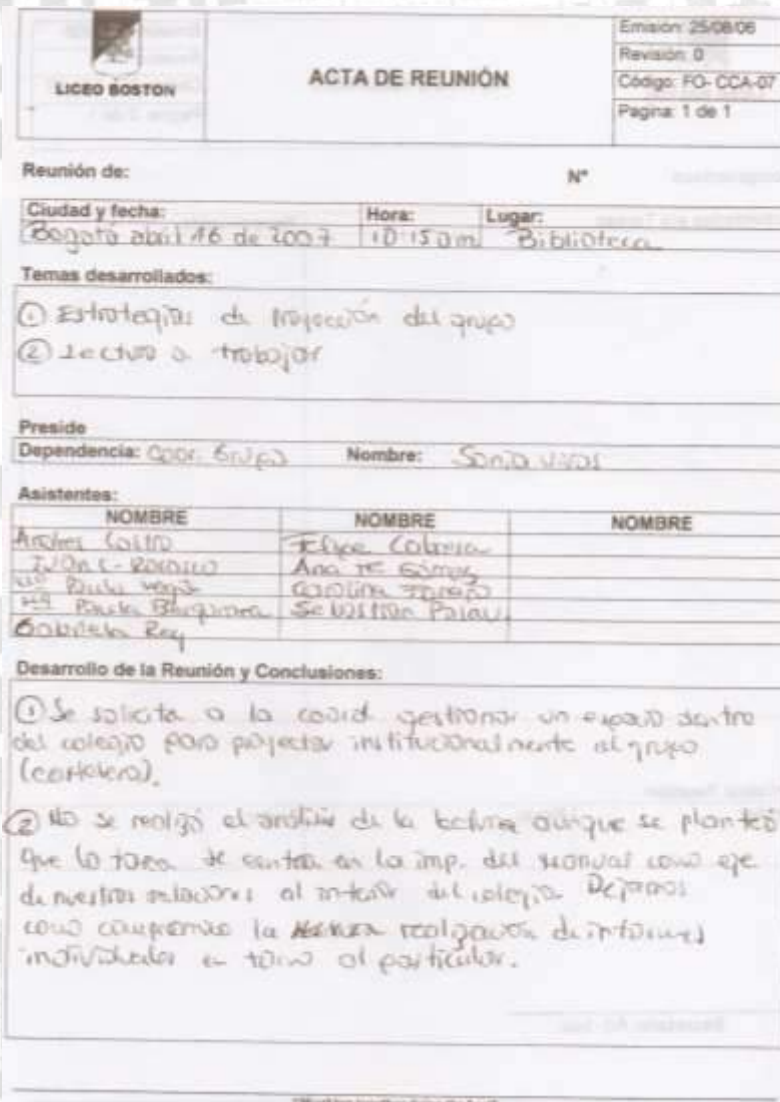 LICEO BOSTON
ACTA DE REUNIÓN
Emisión: 25/08/06
Revisión: 0
Código: FO- CCA-07
Pagina: 1 de 1
Reunión de: N°
Ciudad y fecha: Hora: Lugar:
Bogotá abril 16 de 2007 10:15 am Biblioteca
Temas desarrollados:
① Estrategias de proyección del grupo
② Lectura a trabajar
Preside
Dependencia: Coor. Grupo Nombre: Sonia Vivas
Asistentes:
NOMBRE NOMBRE NOMBRE
Andres Castro Felipe Cabrera
Ana Mª Gómez
Mª Paula Vega Carolina
Mª Paula Sebastian Palau
Gabriela Rey
Desarrollo de la Reunión y Conclusiones:
① Se solicita a la coord. gestionar un espacio dentro
del colegio para proyectar institucionalmente al grupo
(cartelera).
② No se realizó el análisis de la lectura aunque se planteó
que la tarea se centra en la imp. del manual como eje
de nuestras relaciones al interior del colegio. Dejamos
como compromiso la realización de informes
individuales en torno al particular.